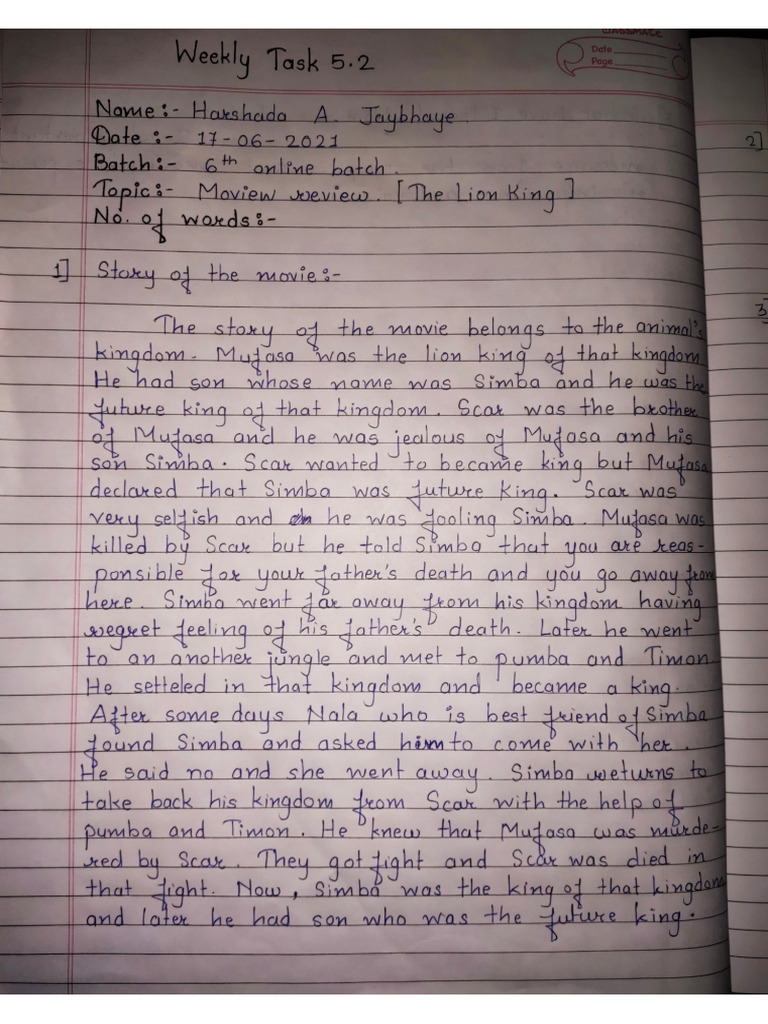 CLASSMATE
Date
Page
Weekly Task 5.2
Name:- Harshada A. Jaybhaye.
Date:- 17-06-2021
Batch:- 6th online batch.
Topic:- Moview review. [The Lion King]
No. of words:-
2]
1] Story of the movie:-
3]
The story of the movie belongs to the animal's
kingdom. Mufasa was the lion king of that kingdom
He had son whose name was Simba and he was the
future king of that kingdom. Scar was the brother
of Mufasa and he was jealous of Mufasa and his
son Simba. Scar wanted to became king but Mufasa
declared that Simba was future king. Scar was
very selfish and he was fooling Simba. Mufasa was
killed by Scar but he told Simba that you are reas-
ponsible for your father's death and you go away from
here. Simba went far away from his kingdom having
regret feeling of his father's death. Later he went
to an another jungle and met to pumba and Timon
He setteled in that kingdom and became a king.
After some days Nala who is best friend of Simba
found Simba and asked him to come with her.
He said no and she went away. Simba returns to
take back his kingdom from Scar with the help of
pumba and Timon. He knew that Mufasa was murde-
red by Scar. They got fight and Scar was died in
that fight. Now, Simba was the king of that kingdom
and later he had son who was the future king.